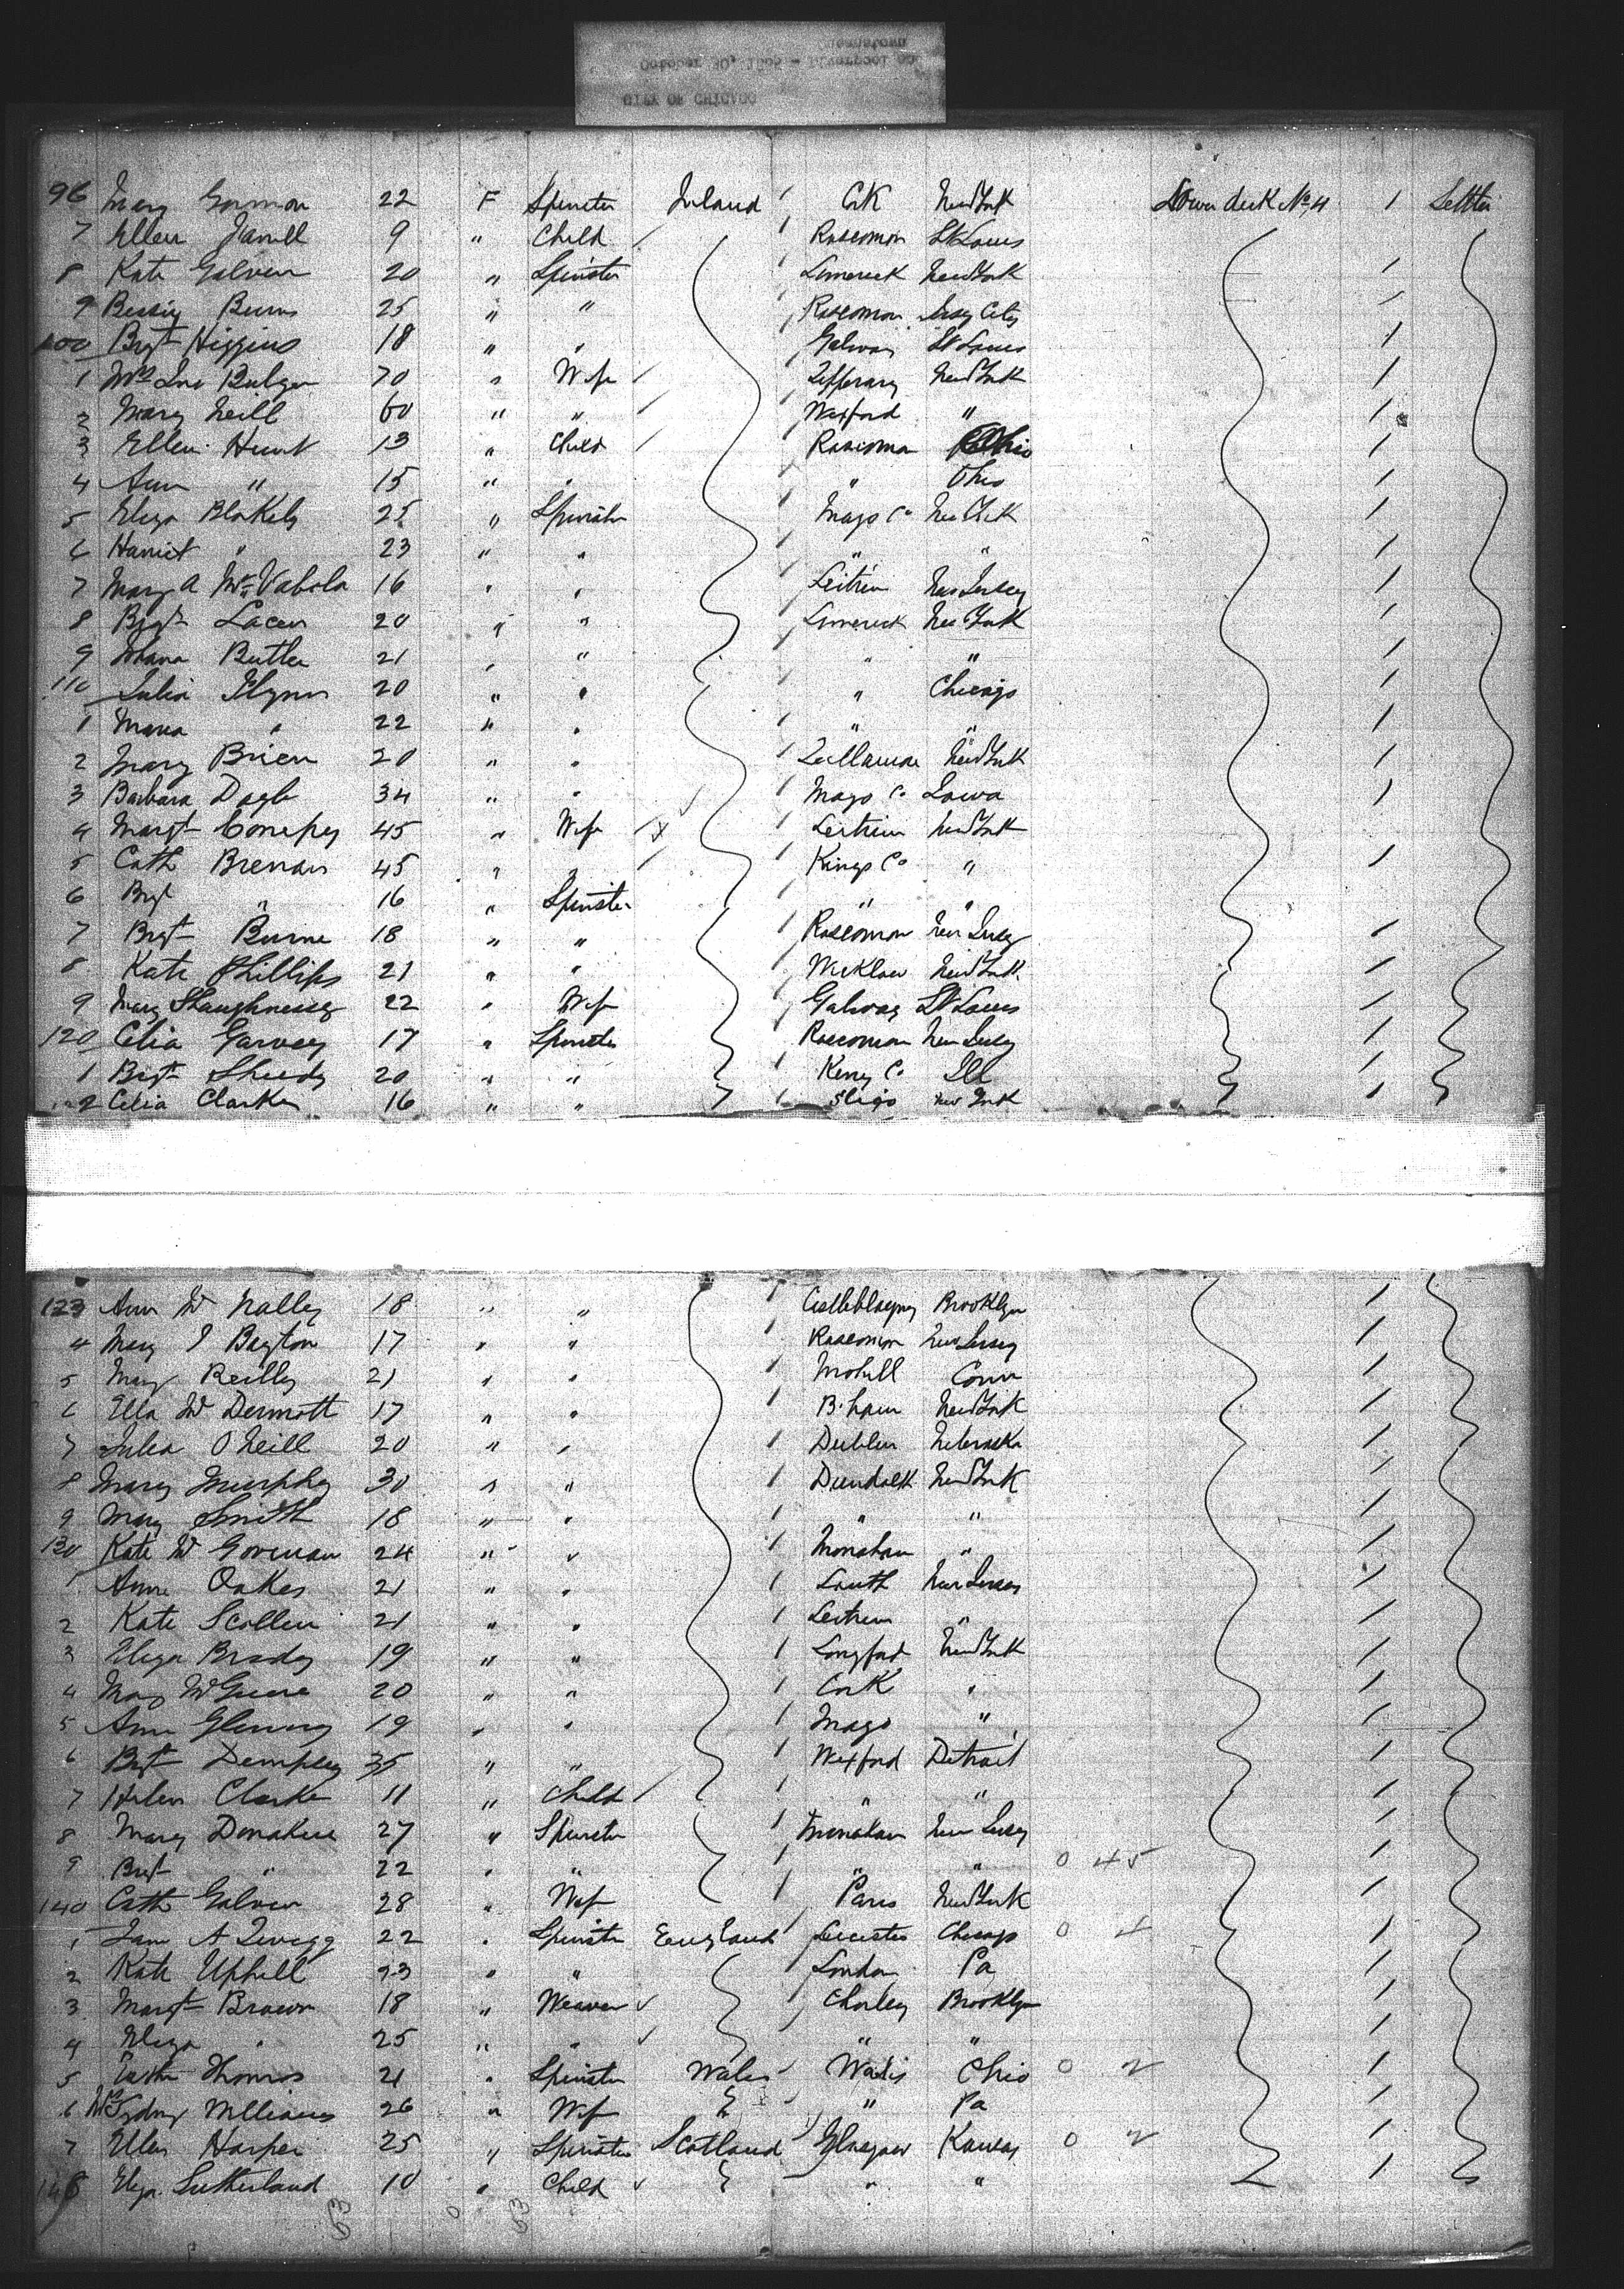 CITY OF CHICAGO
October 30, - Liverpool
Queenstown
96 Mary Gorman 22 F Spinster Ireland 1 Cork New York Lower deck No 4 1 Settler
7 Ellen 9 " Child / 1 Roscomon St Louis
8 Kate Galvin 20 " Spinster Limerick New York /
9 Bessie Burns 25 " " Roscomon Jersey City /
100 Bgt Higgins 18 " " Galway St Louis /
1 Mrs Bulger 70 " Wife / Tipperary New York /
2 Mary Neill 60 " " / Wexford " /
3 Ellen Hunt 13 " Child / Roscomon Ohio /
4 Ann " 15 " " " Ohio /
5 Eliza Blakely 25 " Spinster Mayo Co New York /
6 Harriet " 23 " " " " /
7 Mary A 16 " " Leitrim New Jersey /
8 Bgt 20 " " Limerick New York /
9 Butler 21 " " " " /
110 Julia Flynn 20 " " " Chicago /
1 Maria " 22 " " " " /
2 Mary Brien 20 " " Tullamore New York /
3 Barbara 34 " " Mayo Co Iowa /
4 Margt 45 " Wife / x Leitrim New York
5 Cath Brenan 45 " " / Kings Co " /
6 Bgt " 16 " Spinster " "
7 Bgt Burne 18 " " Roscomon New Jersey /
8 Kate Phillips 21 " " Wicklow New York /
9 Mary Shaughnessy 22 " Wife Galway St Louis /
120 Celia Garvey 17 " Spinster Roscomon New Jersey /
1 Bgt Sheedy 20 " " Kerry Co Ill /
122 Celia Clarke 16 " " Sligo New York /
123 Ann Mc Nally 18 " " Castleblayney Brooklyn /
4 Mary J 17 " " Roscomon New Jersey /
5 Mary Reilly 21 " " Mohill Conn /
6 Ella Mc Dermott 17 " " B.ham New York /
7 Julia O Neill 20 " " Dublin Nebraska /
8 Mary Murphy 30 " " Dundalk New York /
9 Mary Smith 18 " " " " /
130 Kate Mc 24 " " Monahan " /
1 Anne Oakes 21 " " Louth New Jersey /
2 Kate Scollin 21 " " Leitrim " /
3 Eliza Brady 19 " " Longford New York /
4 20 " " Cork " /
5 Ann 19 " " Mayo " /
6 Bgt Dempsey 35 " " Wexford Detroit /
7 Helen Clarke 11 " Child / " " /
8 Mary Donahue 27 " Spinster Monahan New Jersey /
9 Bgt " 22 " " " " 0 45 /
140 Cath Galvin 28 " Wife Paris New York /
1 22 " Spinster England Leicester Chicago 0 4 /
2 Kate Uphill 23 " " London Pa /
3 Margt Brown 18 " Weaver Chorley Brooklyn /
4 Eliza " 25 " " " " /
5 Thomas 21 " Spinster Wales Ohio 0 2 /
6 Mrs Sydney Williams 26 " Wife " Pa /
7 Ellen Harper 25 " Spinster Scotland Glasgow Kansas 0 2 /
148 Eliza Sutherland 10 " Child " " /
53 0 53